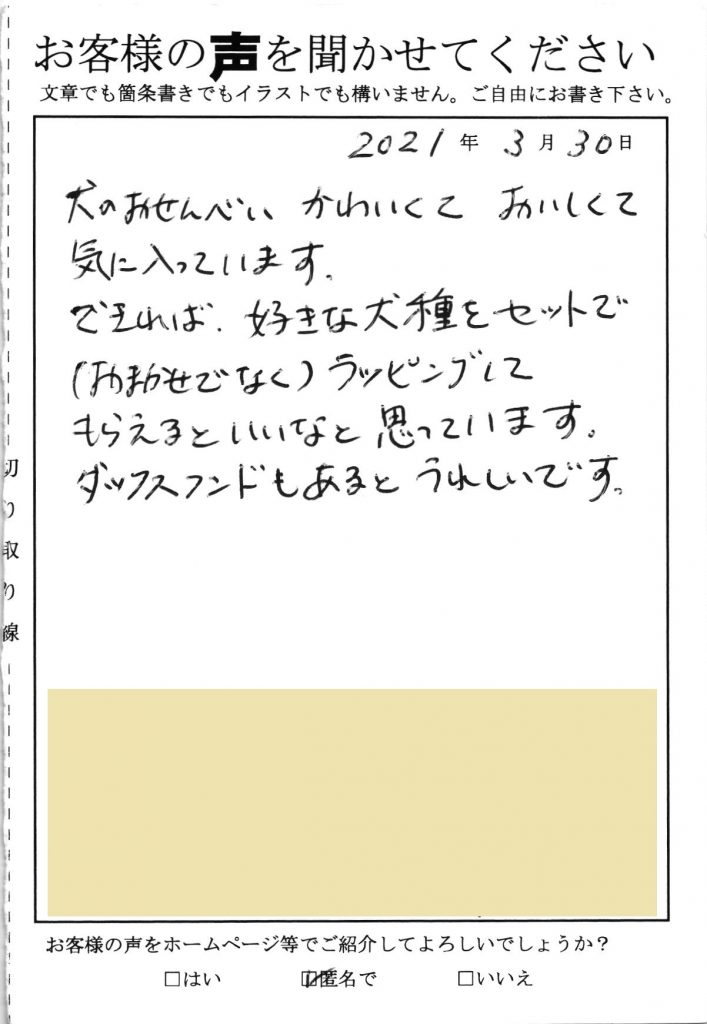 お客様の声を聞かせてください
文章でも箇条書きでもイラストでも構いません。ご自由にお書き下さい。
2021年 3月 30日
犬のおせんべい かわいくて おいしくて
気に入っています。
できれば、好きな犬種をセットで
(おまかせでなく)ラッピングして
もらえるといいなと思っています。
ダックスフンドもあるとうれしいです。
切り取り線
お客様の声をホームページ等でご紹介してよろしいでしょうか?
□はい ☑匿名で □いいえ